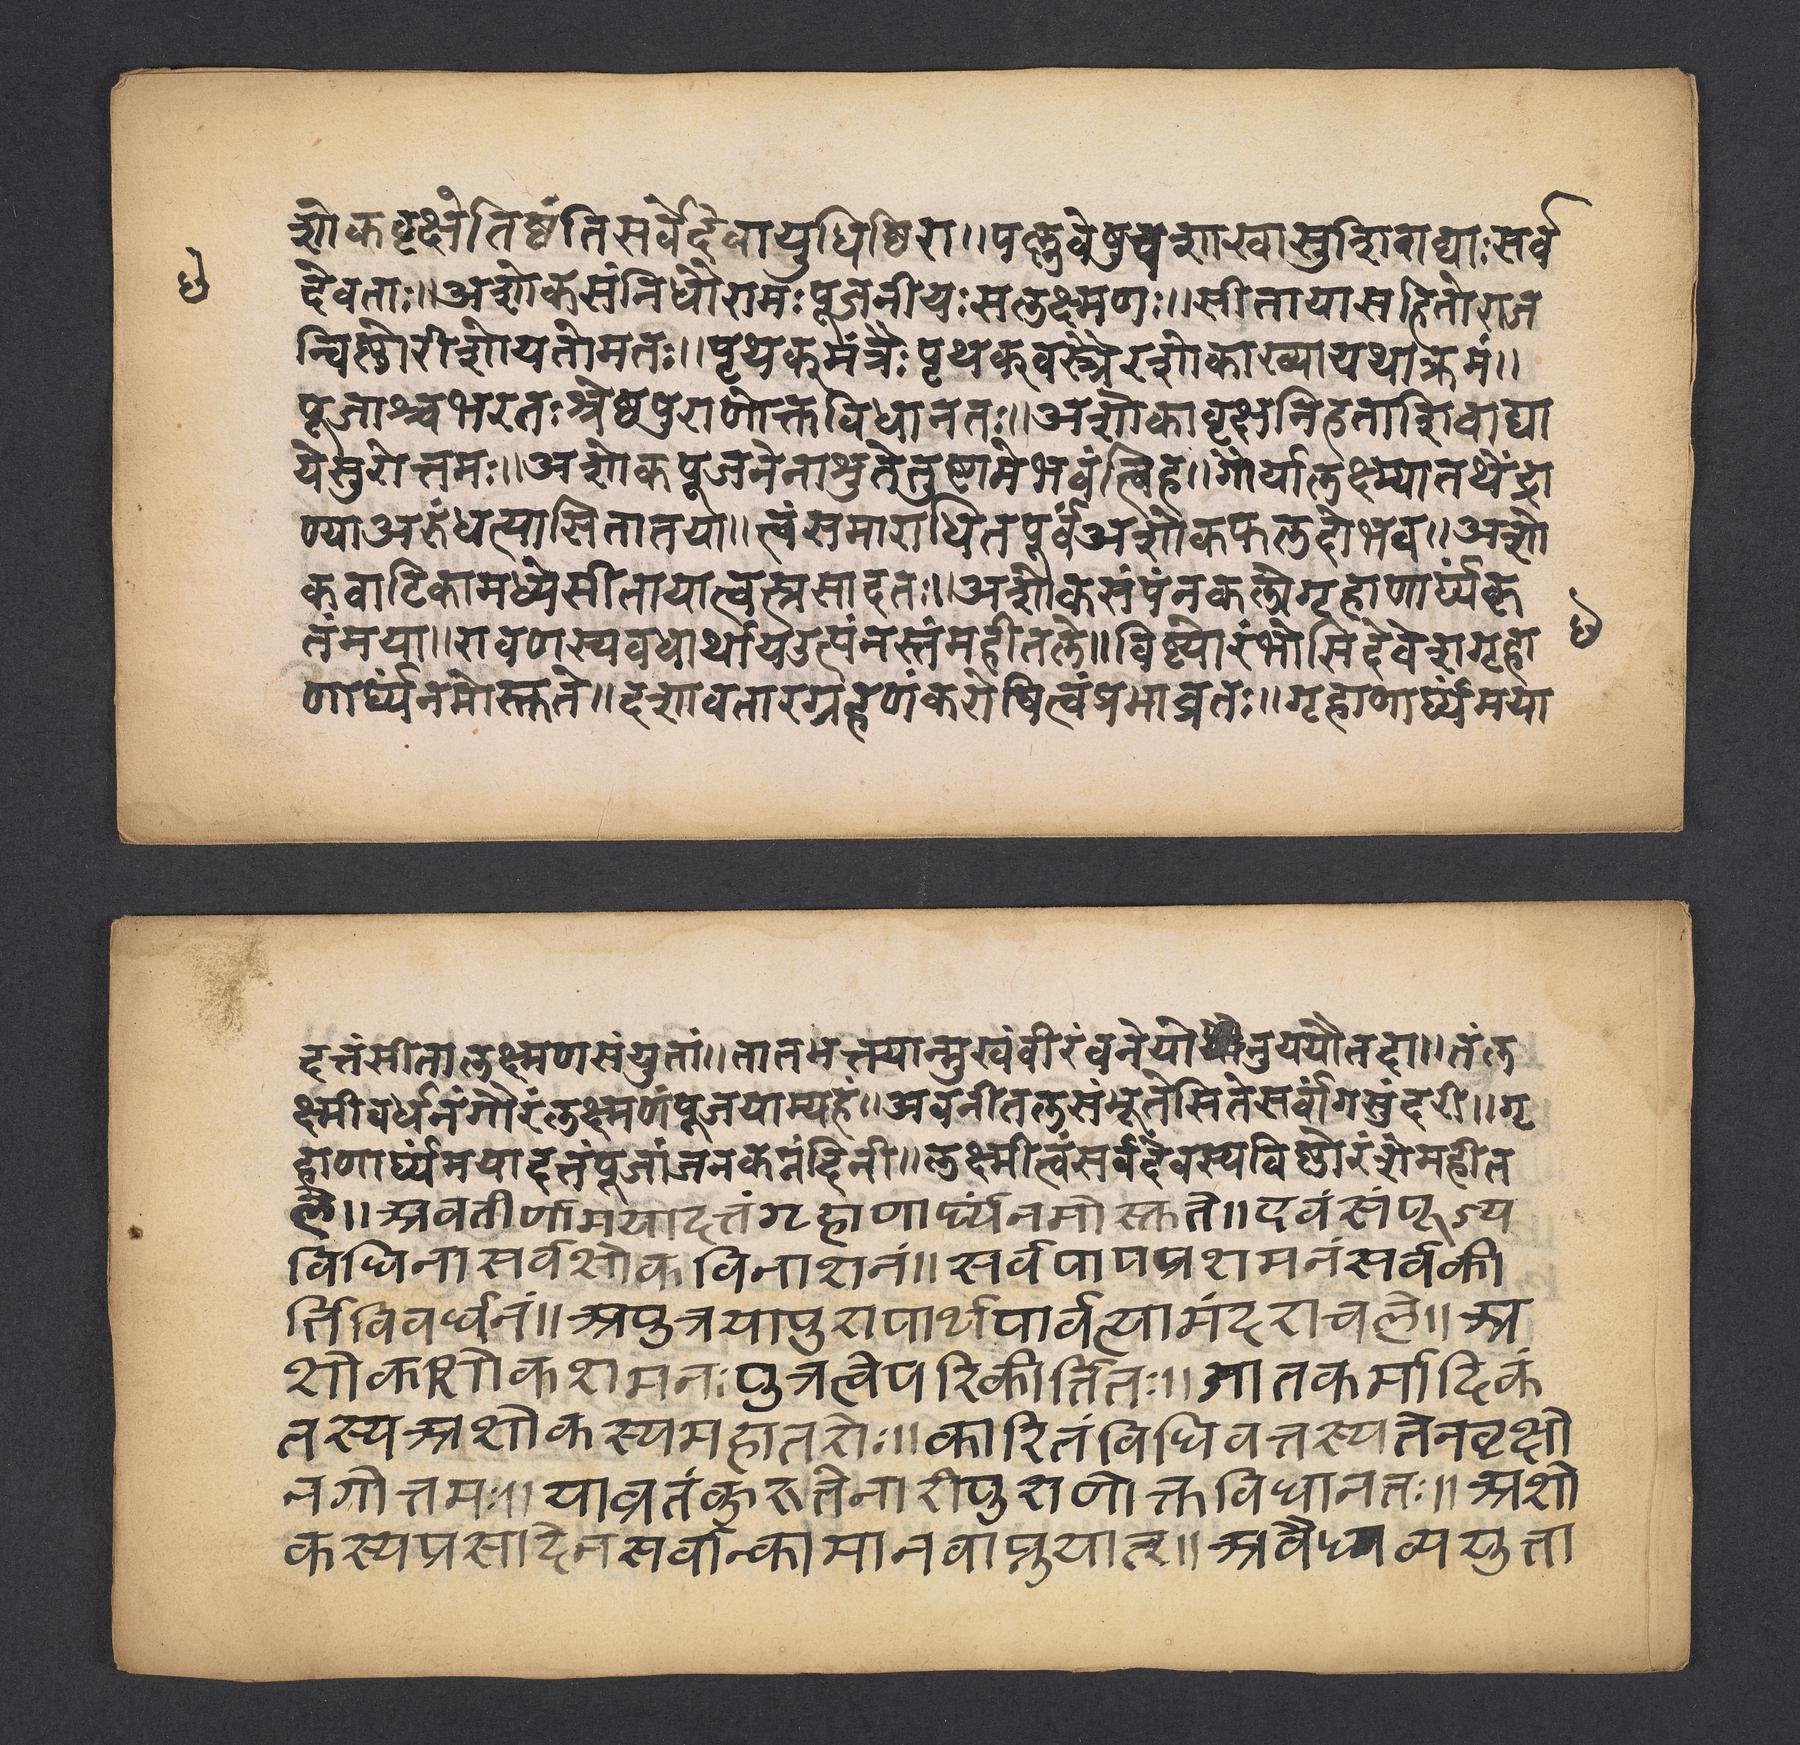 शोकवृक्षेतिष्ठंतिसर्वेदेवायुधिष्ठिरा॥पल्लवेषुचशाखासुशिवाद्याःसर्व
देवताः॥अशोकसंनिधौरामःपूजनीयःसलक्ष्मणः॥सीतायासहितोराज
न्विष्णोरीशोयतोमतः॥पृथक्मंत्रैःपृथक्वस्त्रैरशोकाख्यायथाक्रमं॥
पूजाश्चभरतःश्रेष्ठपुराणोक्तविधानतः॥अशोकावृक्षनिहताशिवाद्या
येसुरोत्तमः॥अशोकपूजनेनाश्रुतेतुष्टामेभवंत्विह॥गौर्यालक्ष्म्यातथेंद्रा
ण्याअरुंधत्यासितातया॥त्वंसमाराधितपूर्वंअशोकफलदोभव॥अशो
कवाटिकामध्येसीतायात्वत्प्रसादतः॥अशोकसंपंनकलौगृहाणार्घ्यंकृ
तंमया॥रावणस्यवधार्थायउत्पंनस्तंमहीतले॥विष्णोरंभोसिदेवेशगृहा
णार्घ्यंनमोस्तुते॥दशावतारग्रहणंकरोषित्वंप्रभाव्रतः॥गृहाणार्घ्यंमया
७
७
दत्तंसीतालक्ष्मणसंयुतां॥तातभक्त्यान्मुखंवीरंवनेयोनुययौतदा॥तंल
क्ष्मीवर्धनंगौरंलक्ष्मणंपूजयाम्यहं॥अवनीतलसंभूतेसितेसर्वांगसुंदरी॥गृ
हाणार्घ्यंमयादत्तंपूजांजनकनंदिनी॥लक्ष्मीत्वंसर्वदेवस्यविष्णोरंशेमहीत
ले॥अवतीर्णामयादत्तंगृहाणार्घ्यंनमोस्तुते॥एवंसंपूज्य
विधिनासर्वशोकविनाशनं॥सर्वपापप्रशमनंसर्वकी
र्तिविवर्धनं॥अपुत्रयापुरापार्थपार्वत्यामंदराचले॥अ
शोकाशोकशमनःपुत्रत्वेपरिकीर्तितः॥जातकर्मादिकं
तस्यअशोकस्यमहातरोः॥कारितंविधिवत्तस्यतेनवृक्षो
नगोत्तमः॥याव्रतंकुरुतेनारीपुराणोक्तविधानतः॥अशो
कस्यप्रसादेनसर्वान्कामानवाप्नुयात्॥अवैधव्ययुता